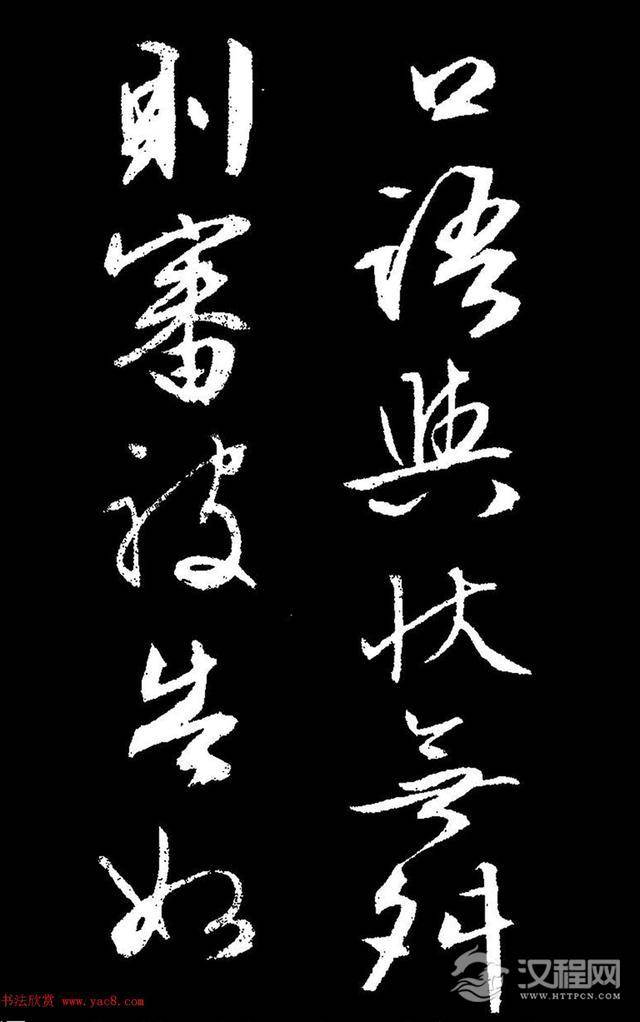 口語與狀無舛
則審被告如
书法欣赏 www.yac8.com
汉程网
WWW.HTTPCN.COM